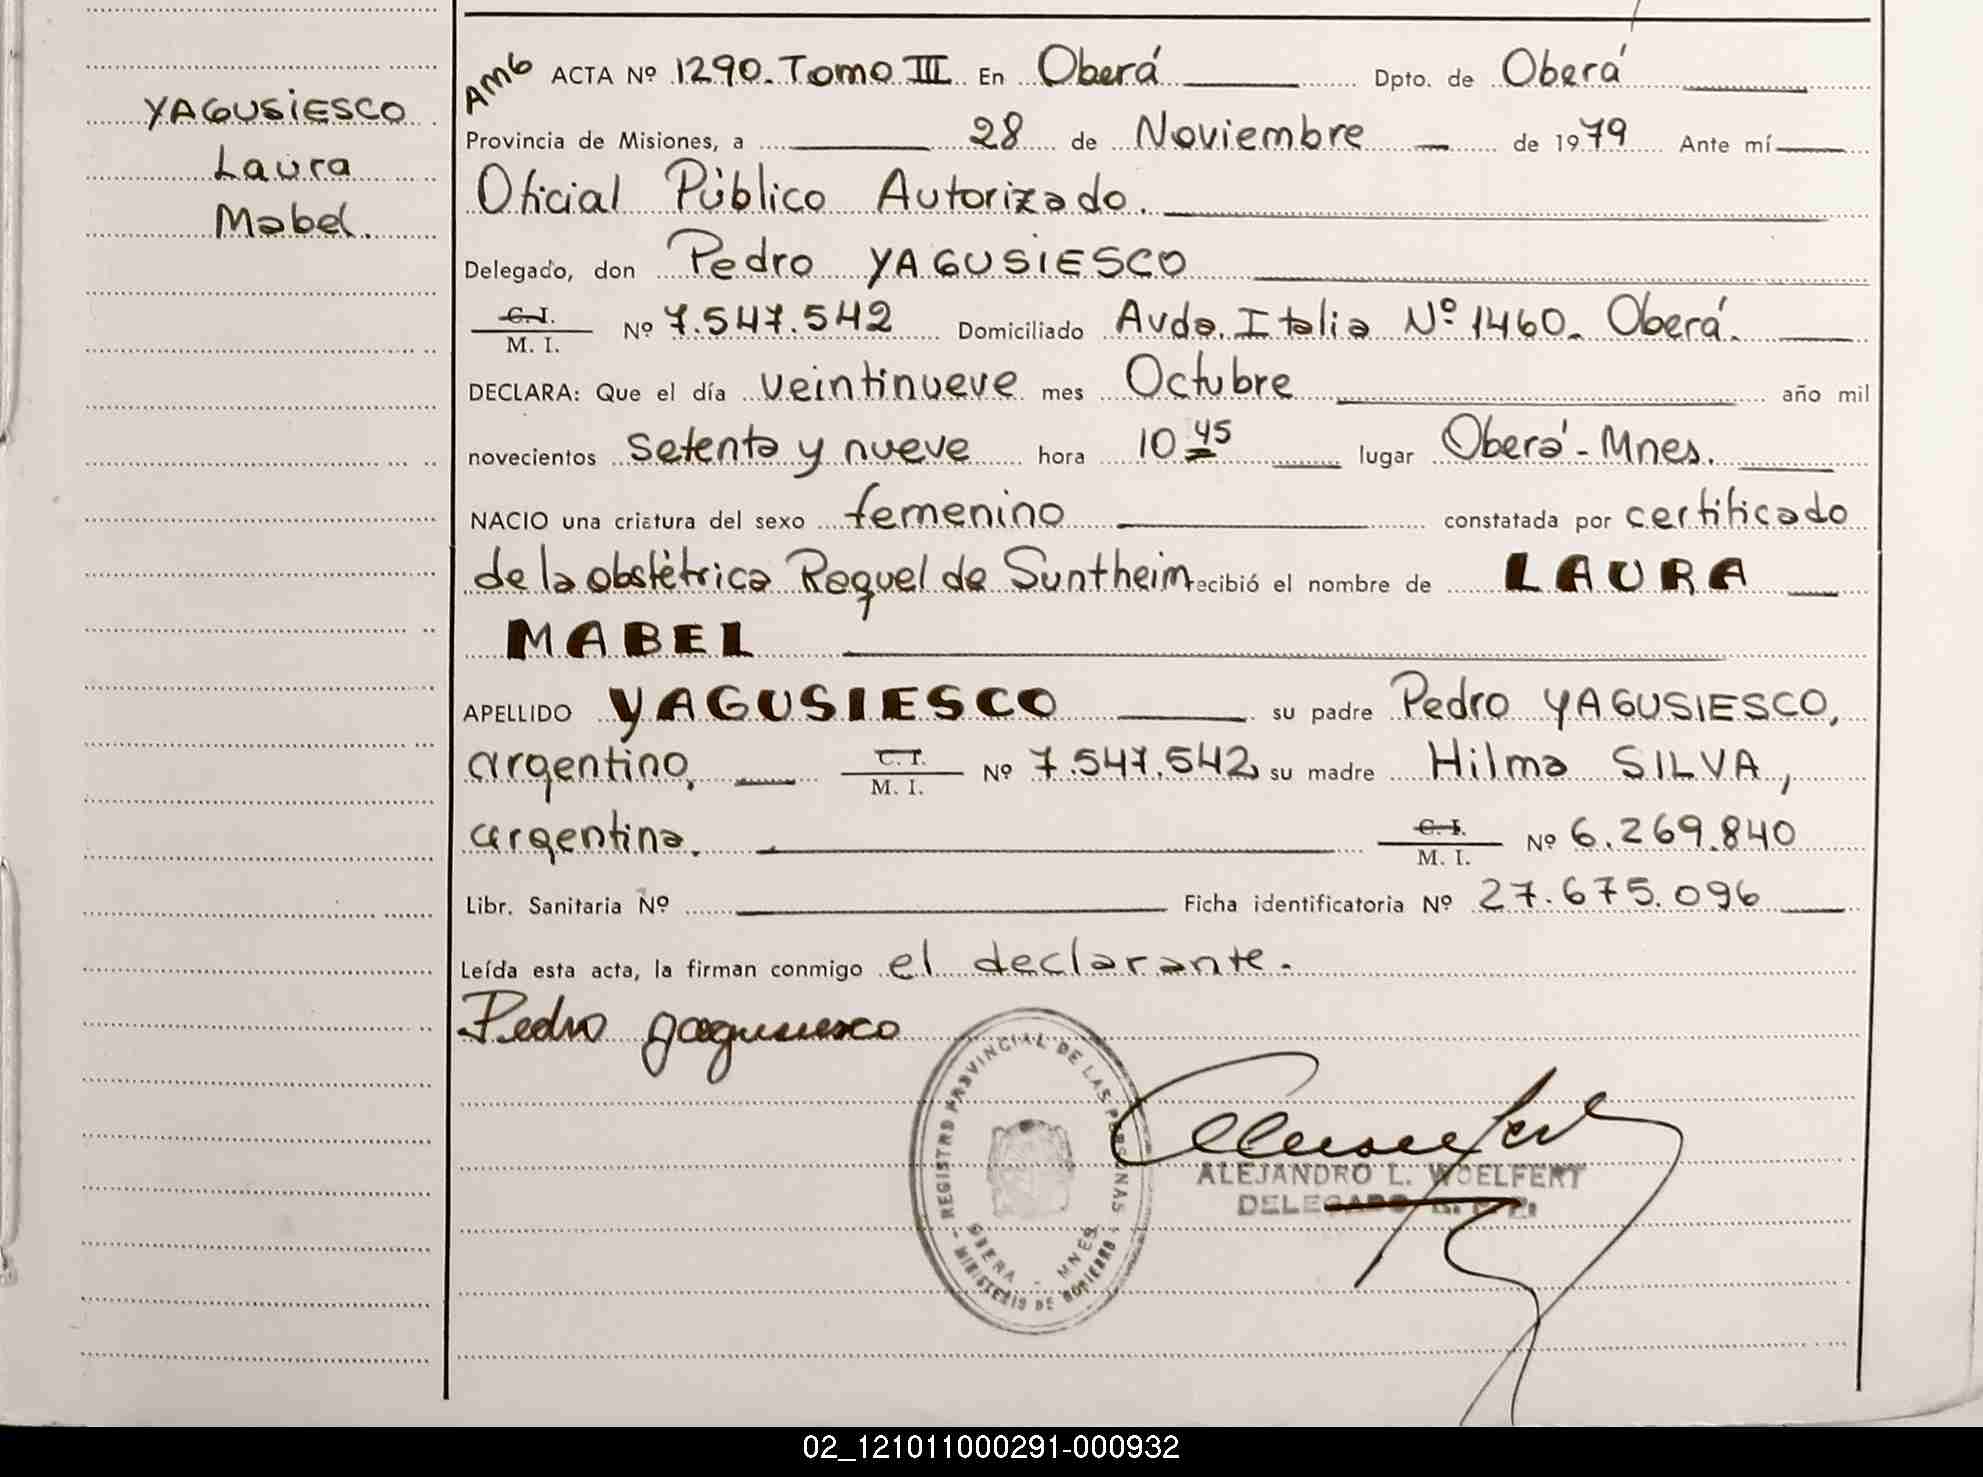 YAGUSIESCO
Laura
Mabel.
AMG ACTA Nº 1290. Tomo III En Oberá Dpto. de Oberá
Provincia de Misiones, a 28 de Noviembre de 1979 Ante mí
Oficial Público Autorizado.
Delegado, don Pedro YAGUSIESCO
C.I. / M. I. Nº 7.547.542 Domiciliado Avda. Italia Nº 1460. Oberá.
DECLARA: Que el día veintinueve mes Octubre año mil
novecientos setenta y nueve hora 10 45 lugar Oberá - Mnes.
NACIO una criatura del sexo femenino constatada por certificado
de la obstètrica Raquel de Suntheim recibió el nombre de LAURA
MABEL
APELLIDO YAGUSIESCO su padre Pedro YAGUSIESCO,
argentino, C.I. / M. I. Nº 7.547.542, su madre Hilma SILVA,
argentina. C.I. / M. I. Nº 6.269.840
Libr. Sanitaria Nº Ficha identificatoria Nº 27.675.096
Leída esta acta, la firman conmigo el declarante.
Pedro Yagusiesco
REGISTRO PROVINCIAL DE LAS PERSONAS
OBERA - MNES
- MINISTERIO DE GOBIERNO -
ALEJANDRO L. WOELFERT
DELEGADO R. P. P.
02_121011000291-000932